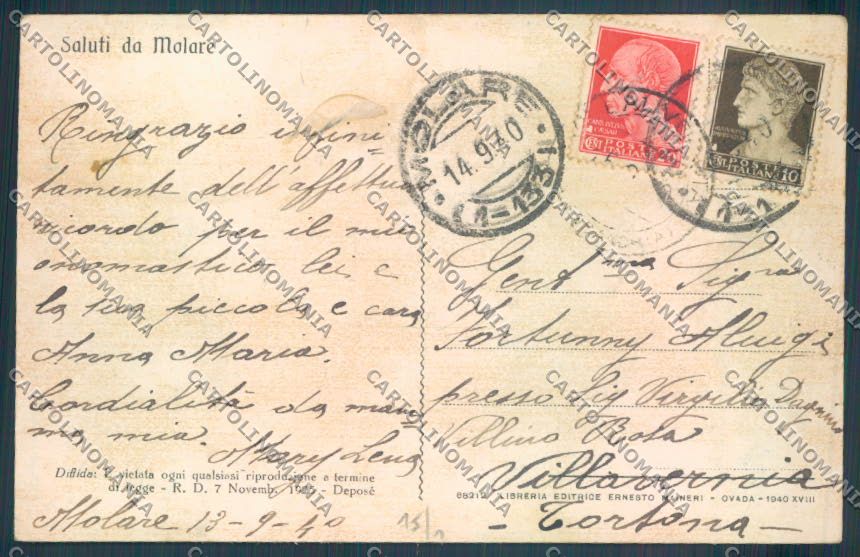 Saluti da Molare
Ringrazio infini-
tamente dell'affettuo
ricordo per il mio
onomastico lei e
la sua piccola e cara
Anna Maria.
Cordialità da mam
ma mia.
Mary Lena
Diffida: È vietata ogni qualsiasi riproduzione a termine
di legge - R. D. 7 Novemb. 1925 - Deposé
Molare 13-9-40
15/
MOLARE
14.9.40
(1-133)
POSTE
ITALIANE
CENT 20
POSTE
ITALIANE
CENT 10
Gent.ma Sig.ra
Fortunny Aluigi
presso Sig Virgilio Dagnino
Villino Rosa
Villavernia
- Tortona -
68212 - LIBRERIA EDITRICE ERNESTO MAINERI - OVADA - 1940 XVIII
CARTOLINOMANIA